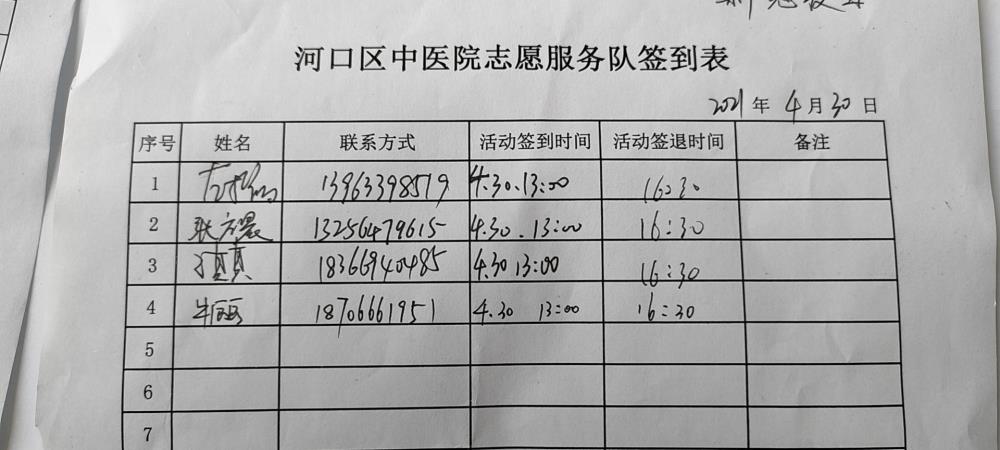 河口区中医院志愿服务队签到表
2021年4月30日
序号 姓名 联系方式 活动签到时间 活动签退时间 备注
1 13963398519 4.30.13:00 16:30
2 13256479615 4.30.13:00 16:30
3 18366940485 4.30 13:00 16:30
4 牛丽 18706661951 4.30 13:00 16:30
5
6
7